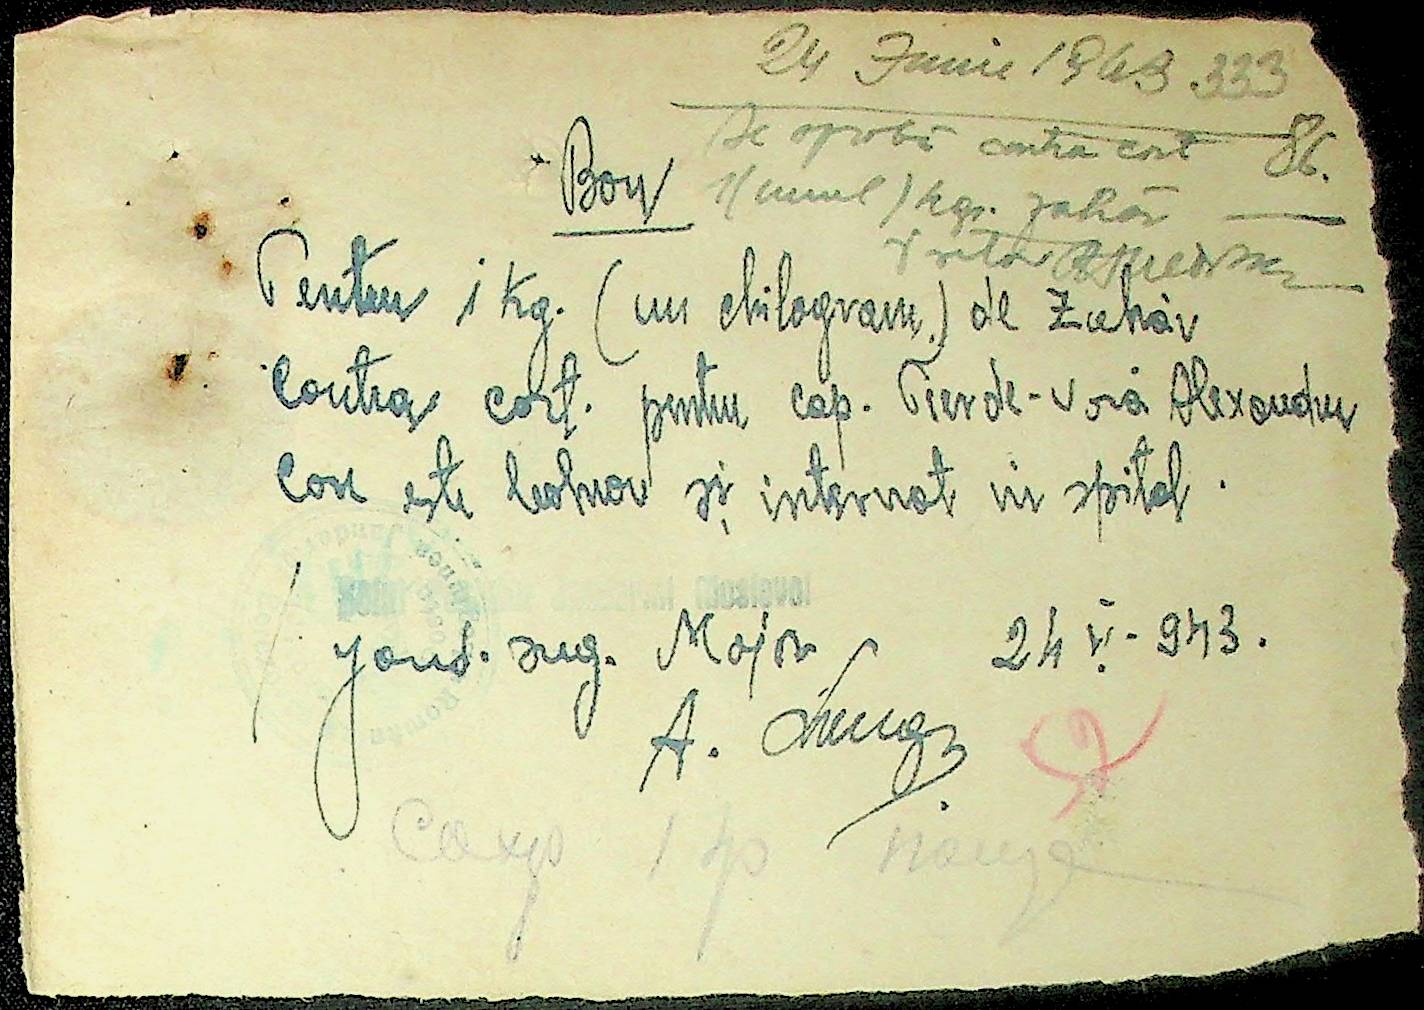 24 Iunie 1943 333
86.
Se aprobă contra cost
1 (unul) kgr. zahăr
Bon
Pentru 1 kg. (un chilogram) de Zahăr
Contra cost. pentru cap. Pierde-Vară Alexandru
Care este bolnav și internat în spital.
Jand. sug. Major 24 V. 943.
A.
Сахар 1 кг